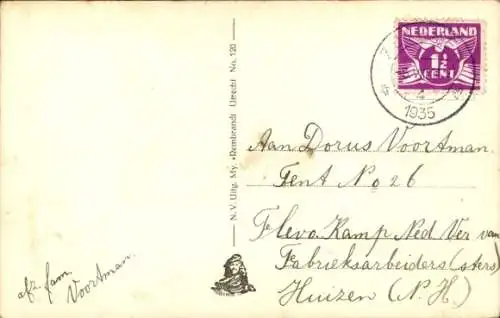 NEDERLAND
1½
CENT
4
1935
N.V. Uitg. My. «Rembrandt» Utrecht No. 120
Aan Dorus Voortman.
Tent No 26
Flevo. Kamp Ned Ver van
Fabrieksarbeiders (sters)
Huizen (N. H.)
afz. fam.
Voortman.